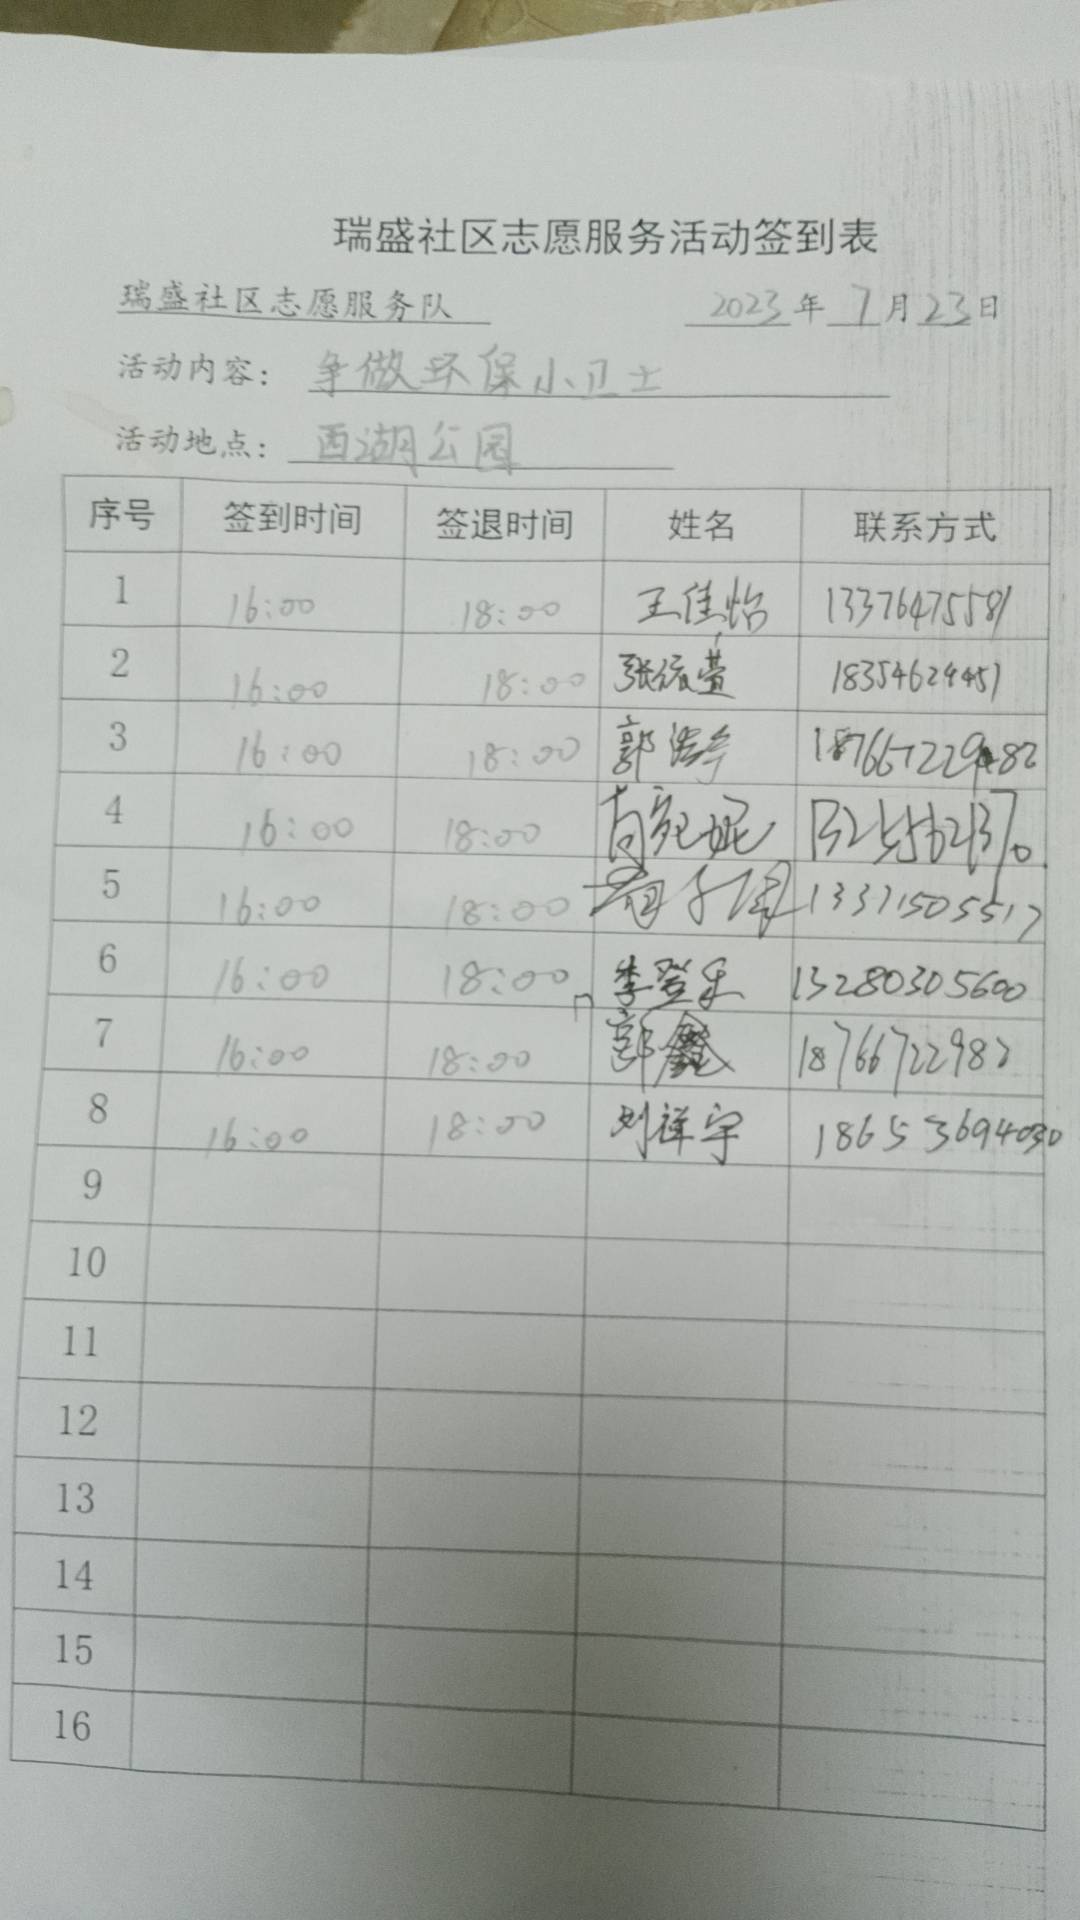 瑞盛社区志愿服务活动签到表
瑞盛社区志愿服务队 2023年7月23日
活动内容：争做环保小卫士
活动地点：西湖公园
序号 签到时间 签退时间 姓名 联系方式
1 16:00 18:00 王佳怡 13376475581
2 16:00 18:00 18354629451
3 16:00 18:00 郭浩宇
4 16:00 18:00
5 16:00 18:00 13371505517
6 16:00 18:00 李登乐 13280305600
7 16:00 18:00 郭鑫 18766722982
8 16:00 18:00 刘祥宇
9
10
11
12
13
14
15
16